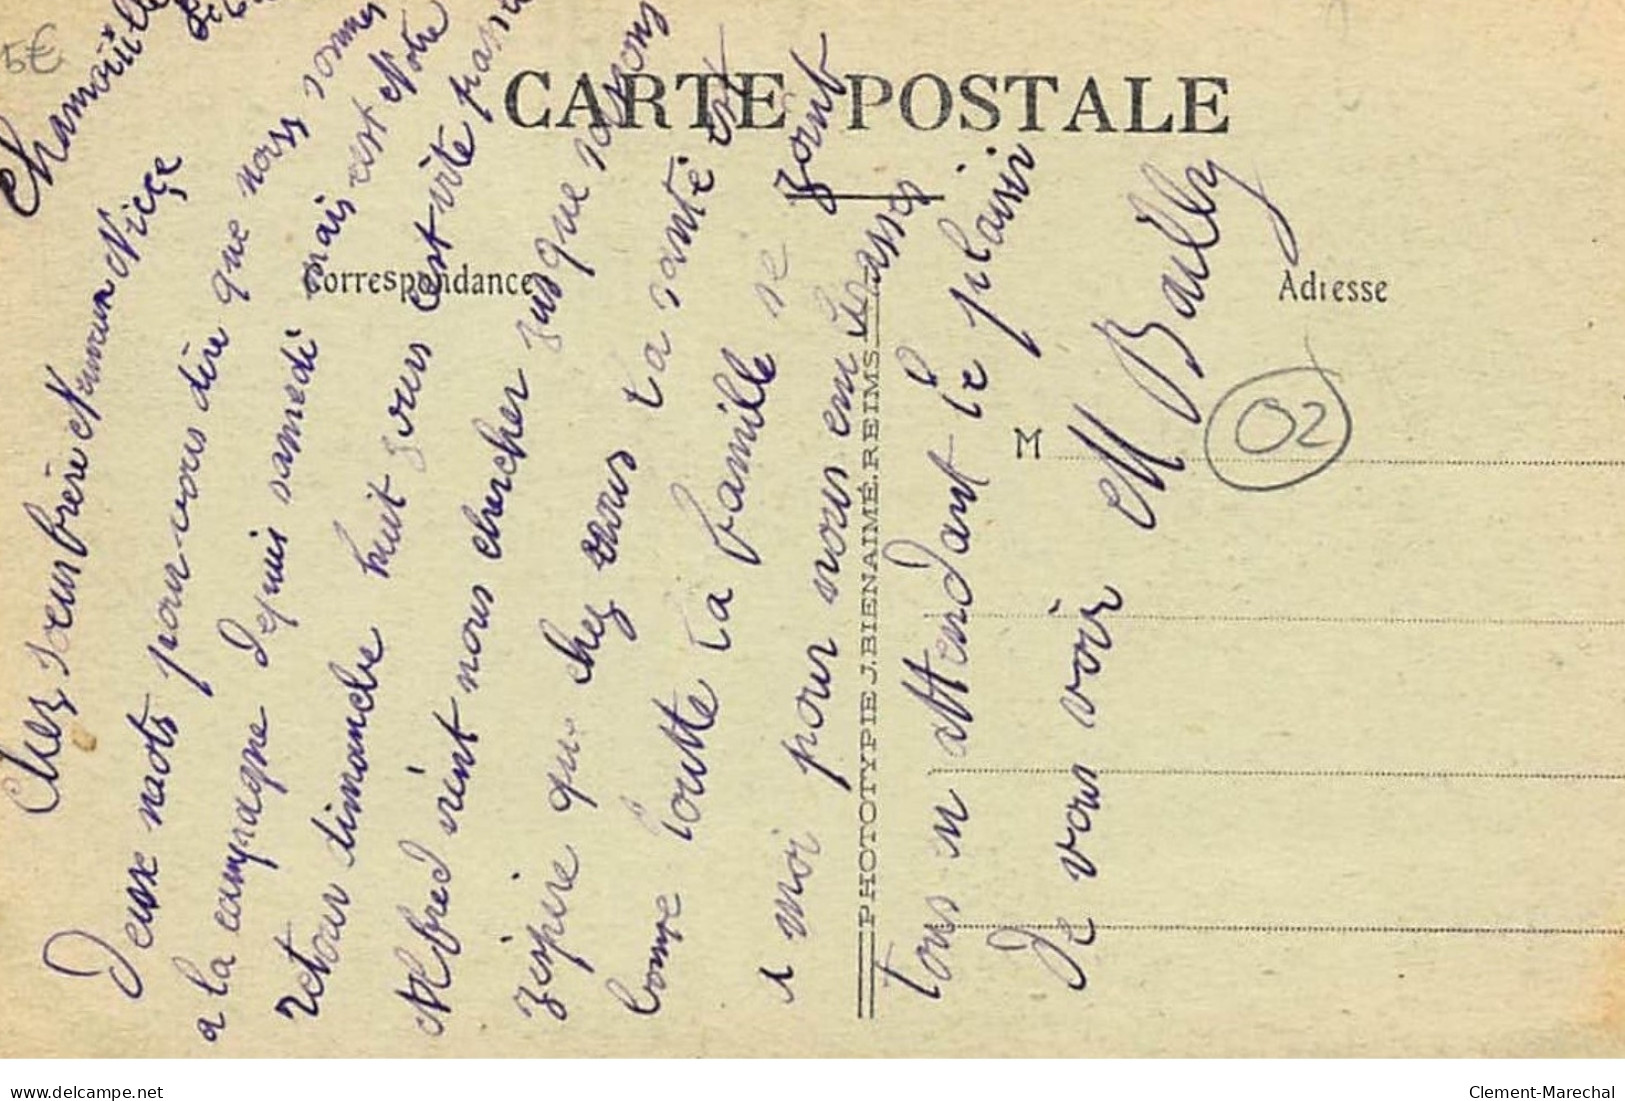 5€
CARTE POSTALE
Correspondance
Adresse
M
02
PHOTOTYPIE J. BIENAIMÉ. REIMS
Chamouille
Chez sœur frère Neveux Nieçe
Deux mots pour vous dire que nous sommes
a la campagne depuis samedi mais c'est Notre
retour dimanche huit jours c'est vite passé
Alfred vient nous chercher jusque
j'espire que chez vous la santé est
bonne toutte la famille se joint
a moi pour vous embrasser
Tous en attendant le plaisir
De vous voir M Bailly
delcampe.net
Clement-Marechal